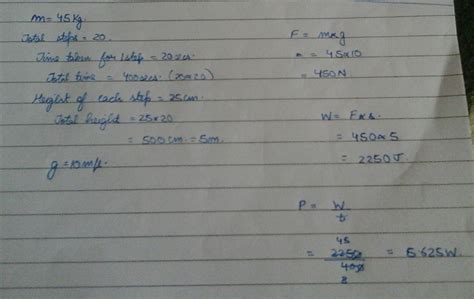 m= 45 Kg.
Total steps = 20.
Time taken for 1 step = 20 sec.
Total time = 400 secs. (20x20)
Height of each step = 25 cm.
Total height = 25 x 20
= 500 cm. = 5m.
g = 10 m/s.
F = mxg
= 45x10
= 450N
W = Fxs.
= 450x5
= 2250 J.
P = W
t
45
= 2250 = 5.625 W.
400
8